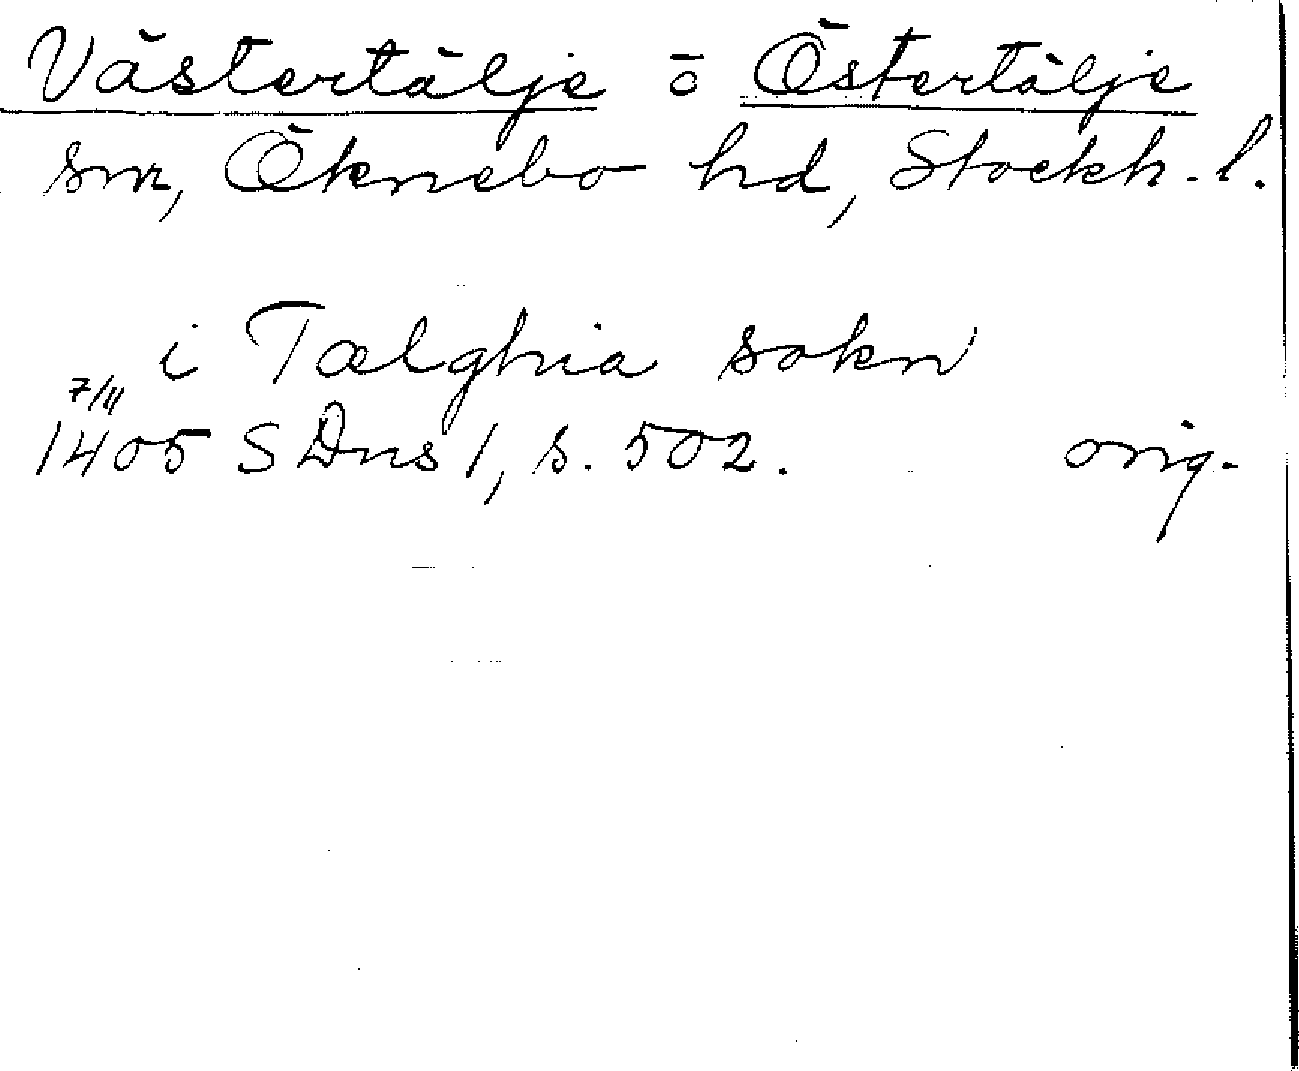 Västertälje o Östertälje
snr, Öknebo hd, Stockh. l.
i Tælghia sokn
7/11
1405 SDns 1, s. 502. orig.